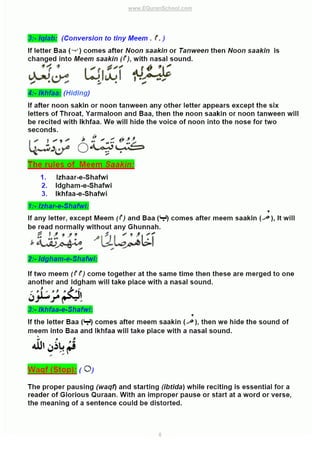 www.EQuranSchool.com
3:- Iqlab: (Conversion to tiny Meem . م . )
If letter Baa (ب) comes after Noon saakin or Tanween then Noon saakin is
changed into Meem saakin (م), with nasal sound.
مِنۢ بَعْدِ
4:- Ikhfaa: (Hiding)
If after noon sakin or noon tanween any other letter appears except the six
letters of Throat, Yarmaloon and Baa, then the noon saakin or noon tanween will
be recited with Ikhfaa. We will hide the voice of noon into the nose for two
seconds.
كُتُبٌ قَيِّمَةٌ
The rules of Meem Saakin:
1. Izhaar-e-Shafwi
2. Idgham-e-Shafwi
3. Ikhfaa-e-Shafwi
1:- Izhar-e-Shafwi:
If any letter, except Meem (م) and Baa (ب) comes after meem saakin (مْ), It will
be read normally without any Ghunnah.
أَخَاهُمْ صَالِحًا مِنْهُمْ تُقٰىةً
2:- Idgham-e-Shafwi:
If two meem (م م) come together at the same time then these are merged to one
another and Idgham will take place with a nasal sound.
اِلَيْكُمْ مُّرْسَلُوْنَ
3:- Ikhfaa-e-Shafwi:
If the letter Baa (ب) comes after meem saakin (مْ), then we hide the sound of
meem into Baa and Ikhfaa will take place with a nasal sound.
قُمْ بِاِذْنِ اللّٰه
Waqf (Stop): ( O )
The proper pausing (waqf) and starting (ibtida) while reciting is essential for a
reader of Glorious Quraan. With an improper pause or start at a word or verse,
the meaning of a sentence could be distorted.